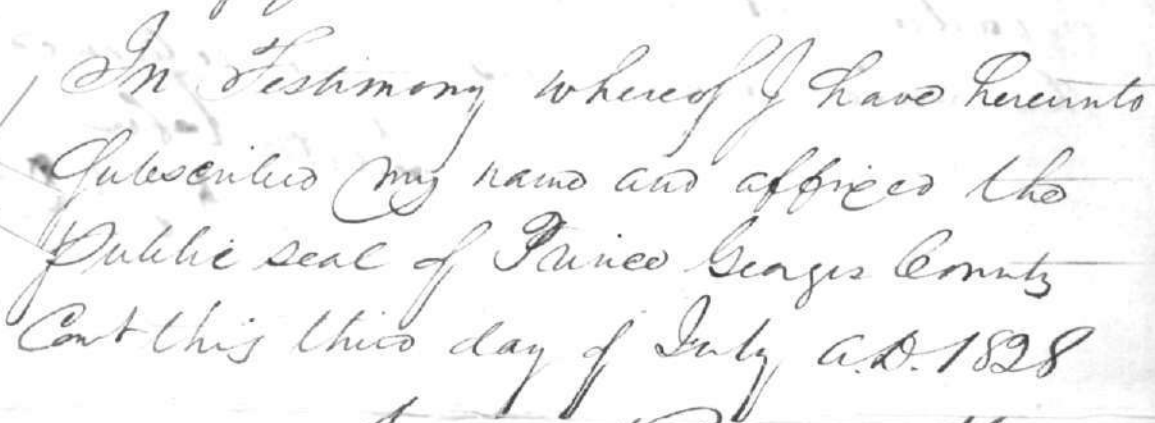 In Testimony whereof I have hereunto
Subscribed my name and affixed the
Public seal of Prince Georges County
Court this third day of July A.D. 1828